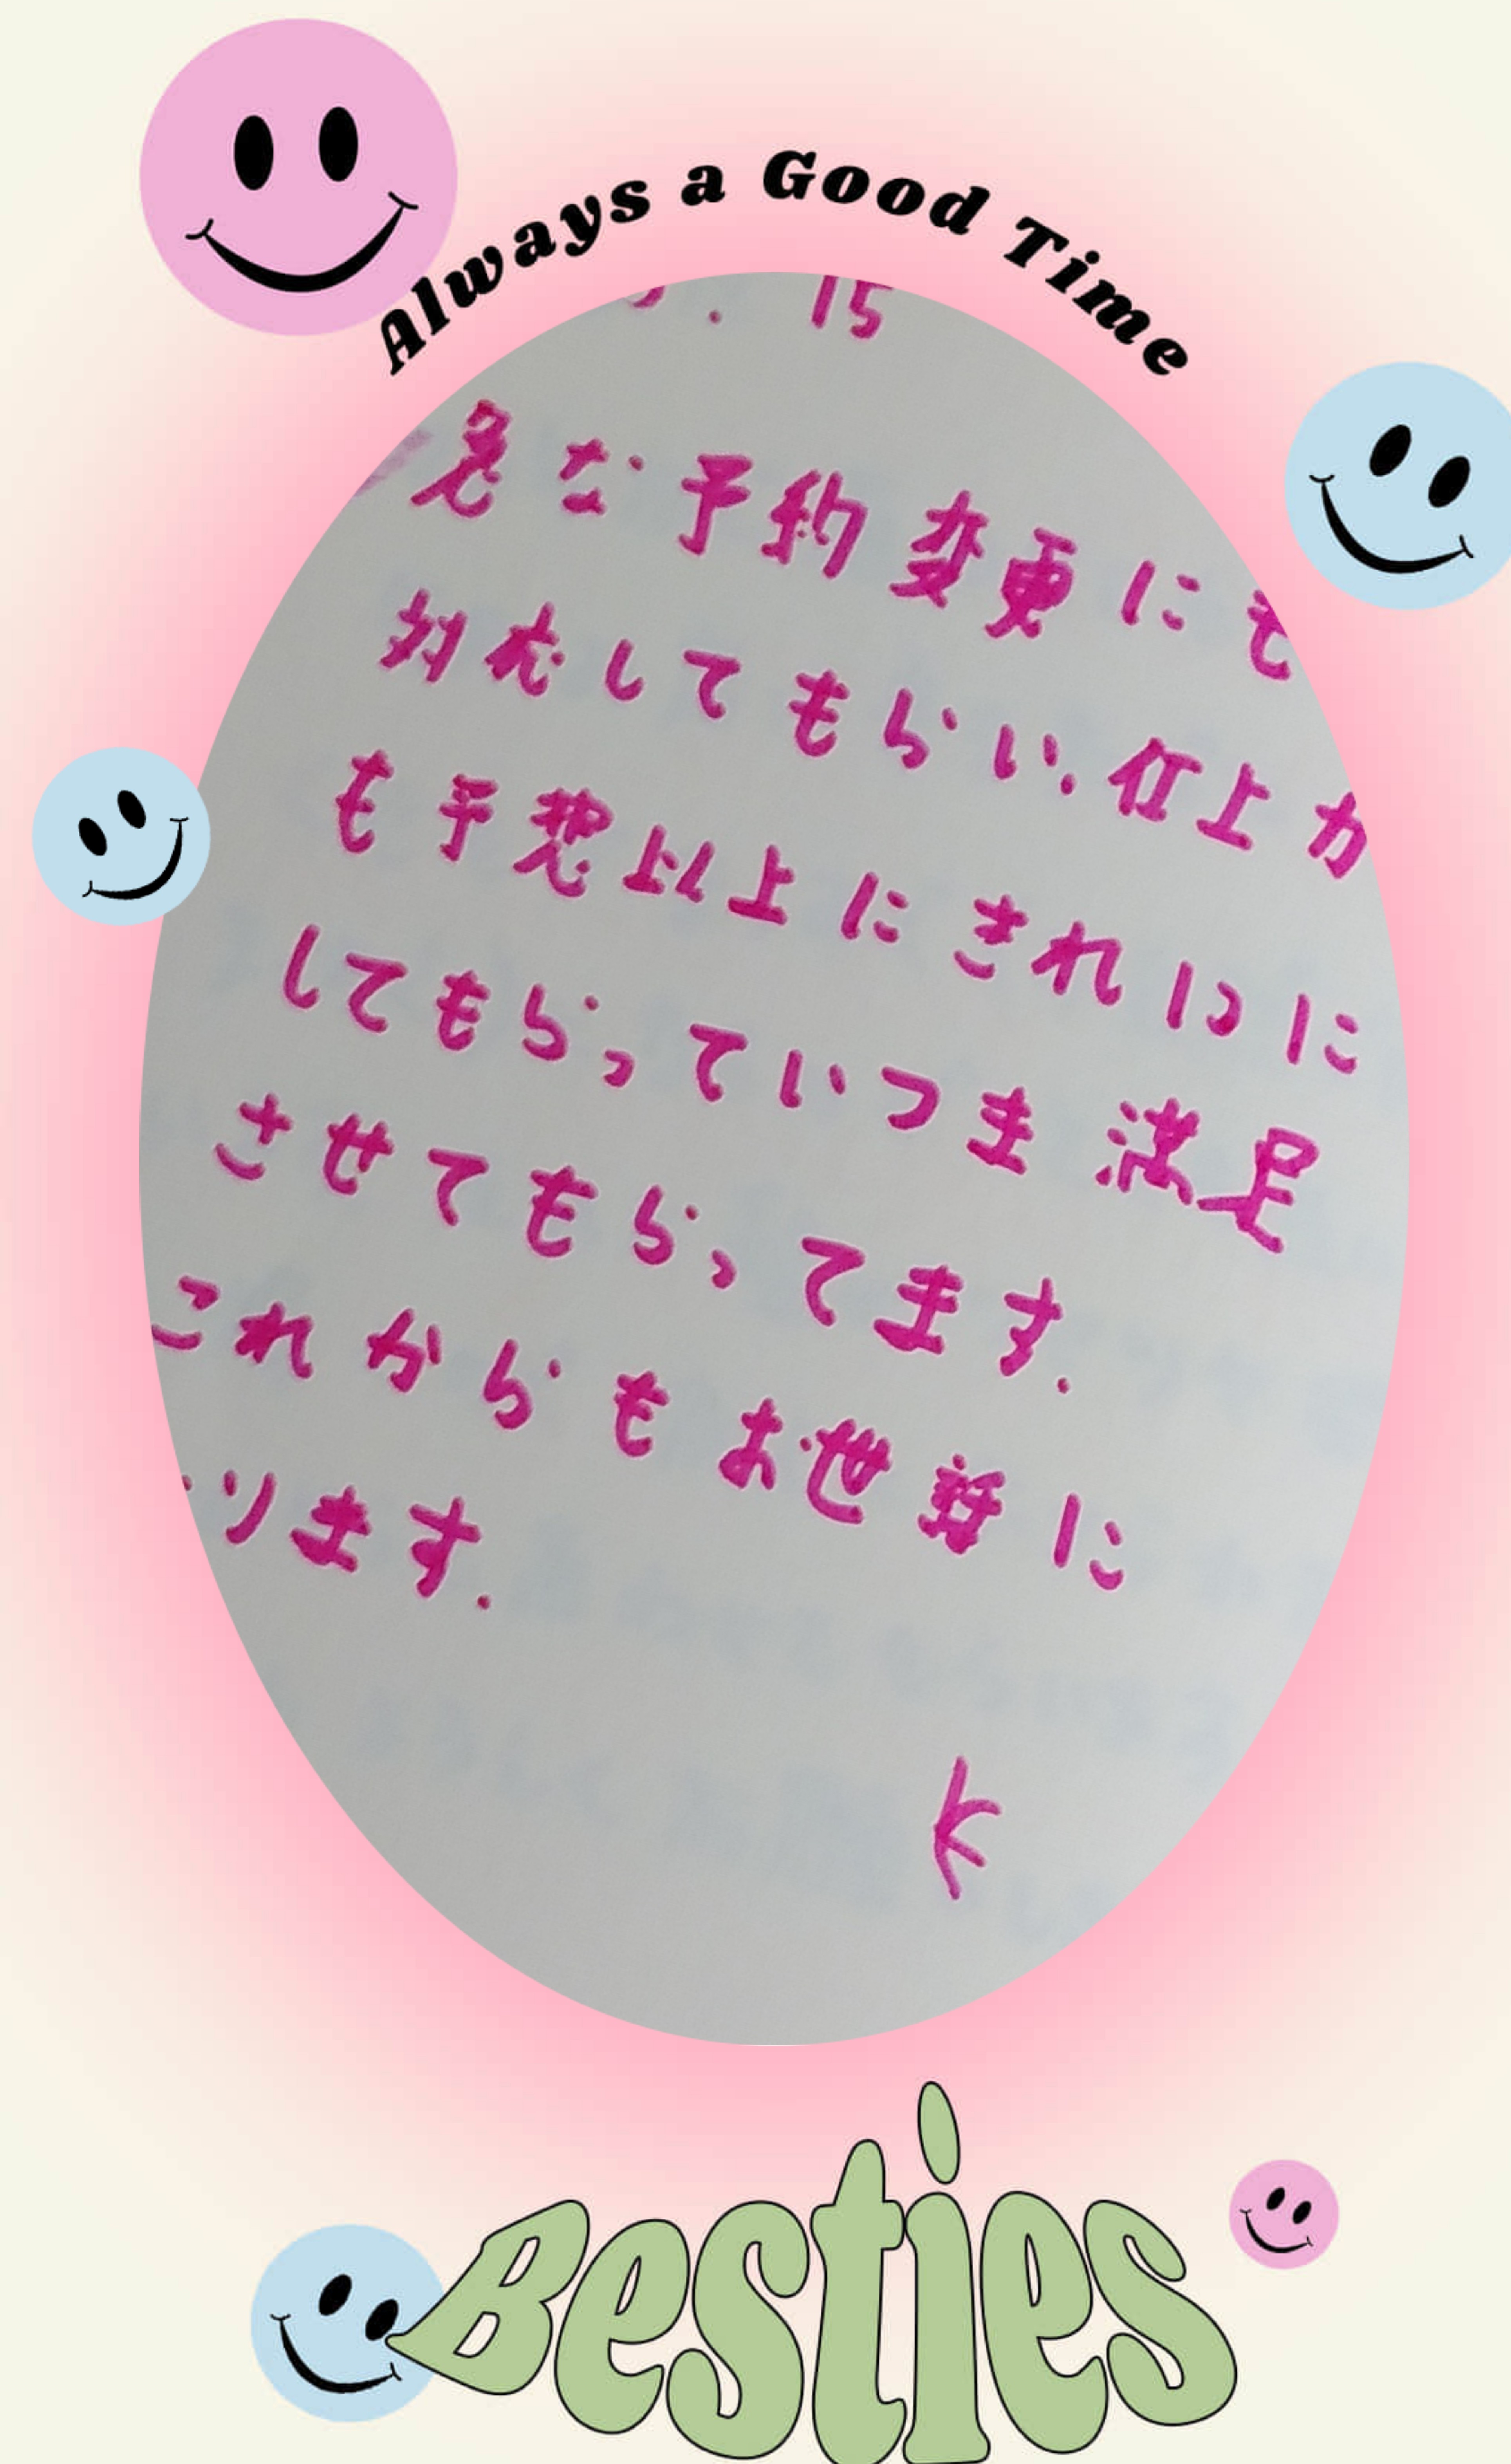 Always a Good Time
. 15
急な予約変更にも
対応してもらい、仕上が
も予想以上にきれいに
してもらっていつも満足
させてもらってます.
これからもお世話に
ります.
K
Besties